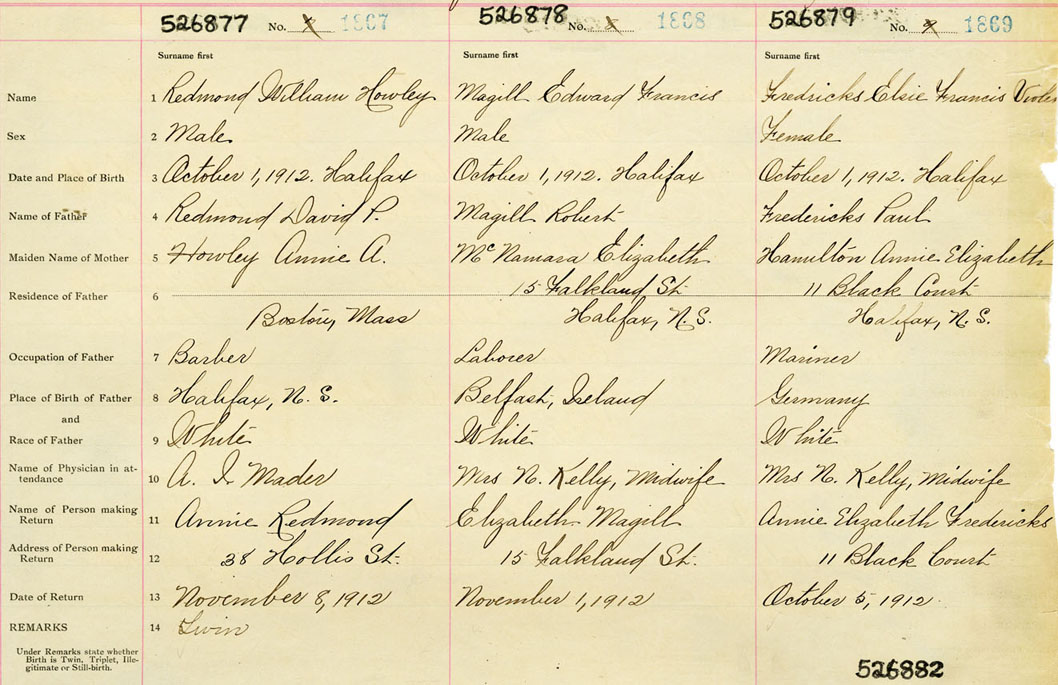 526877 No. 1867 526878 No. 1868 526879 No. 1869
Surname first Surname first Surname first
Name 1 Redmond William Howley Magill Edward Francis Fredricks Elsie Francis
Sex 2 Male Male Female
Date and Place of Birth 3 October 1, 1912. Halifax October 1, 1912. Halifax October 1, 1912. Halifax
Name of Father 4 Redmond David P. Magill Robert Fredericks Paul
Maiden Name of Mother 5 Howley Annie A. McNamara Elizabeth Hamilton Annie Elizabeth
15 Falkland St. 11 Black Court
Residence of Father 6
Boston, Mass Halifax, N.S. Halifax, N.S.
Occupation of Father 7 Barber Laborer Mariner
Place of Birth of Father 8 Halifax, N.S. Belfast, Ireland Germany
and
Race of Father 9 White White White
Name of Physician in at-
tendance 10 A. I. Mader Mrs N. Kelly, Midwife Mrs N. Kelly, Midwife
Name of Person making
Return 11 Annie Redmond Elizabeth Magill Annie Elizabeth Fredericks
Address of Person making
Return 12 38 Hollis St. 15 Falkland St. 11 Black Court
Date of Return 13 November 8, 1912 November 1, 1912 October 5, 1912
REMARKS 14 Twin
Under Remarks state whether
Birth is Twin, Triplet, Ille-
gitimate or Still-birth.
526882